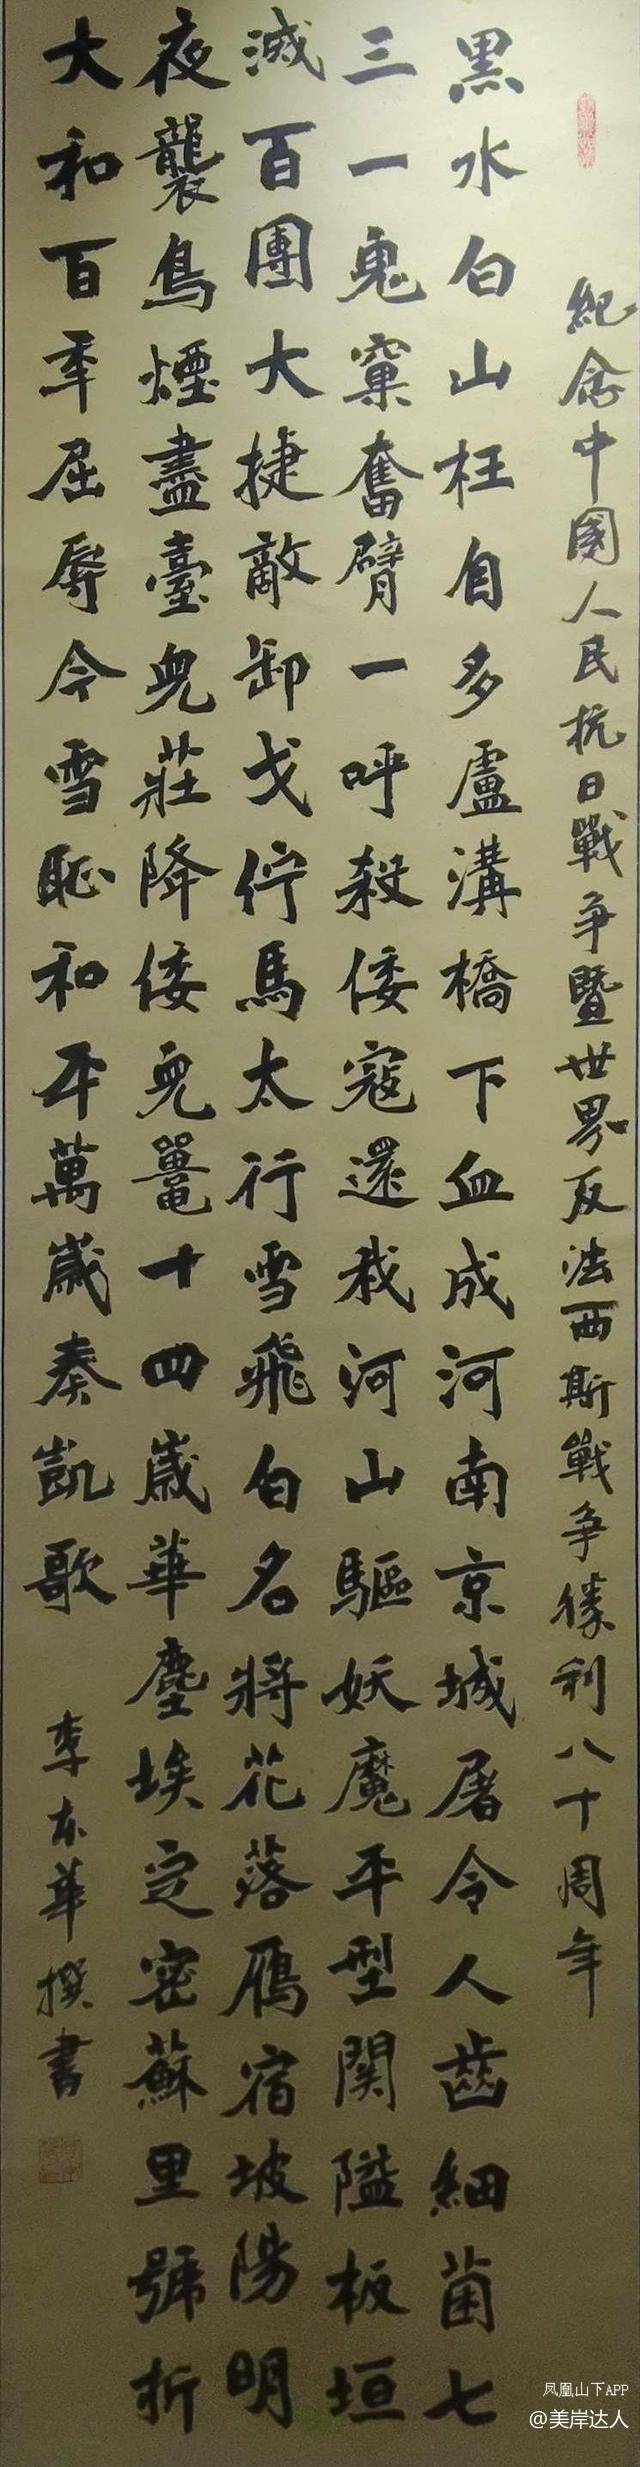 紀念中國人民抗日戰争暨世界反法西斯戰争勝利八十周年
黑水白山枉自多盧溝橋下血成河南京城屠令人齒細菌七
三一鬼窠奮臂一呼殺倭寇還我河山驅妖魔平型関隘板垣
滅百團大捷敵卸戈佇馬太行雪飛白名將花落雁宿坡陽明
夜襲鳥煙盡臺兒莊降倭兒鼉十四歲華塵埃定密蘇里號折
大和百年屈辱今雪恥和平萬歲奏凱歌
李華撰書
凤凰山下APP
@美岸达人